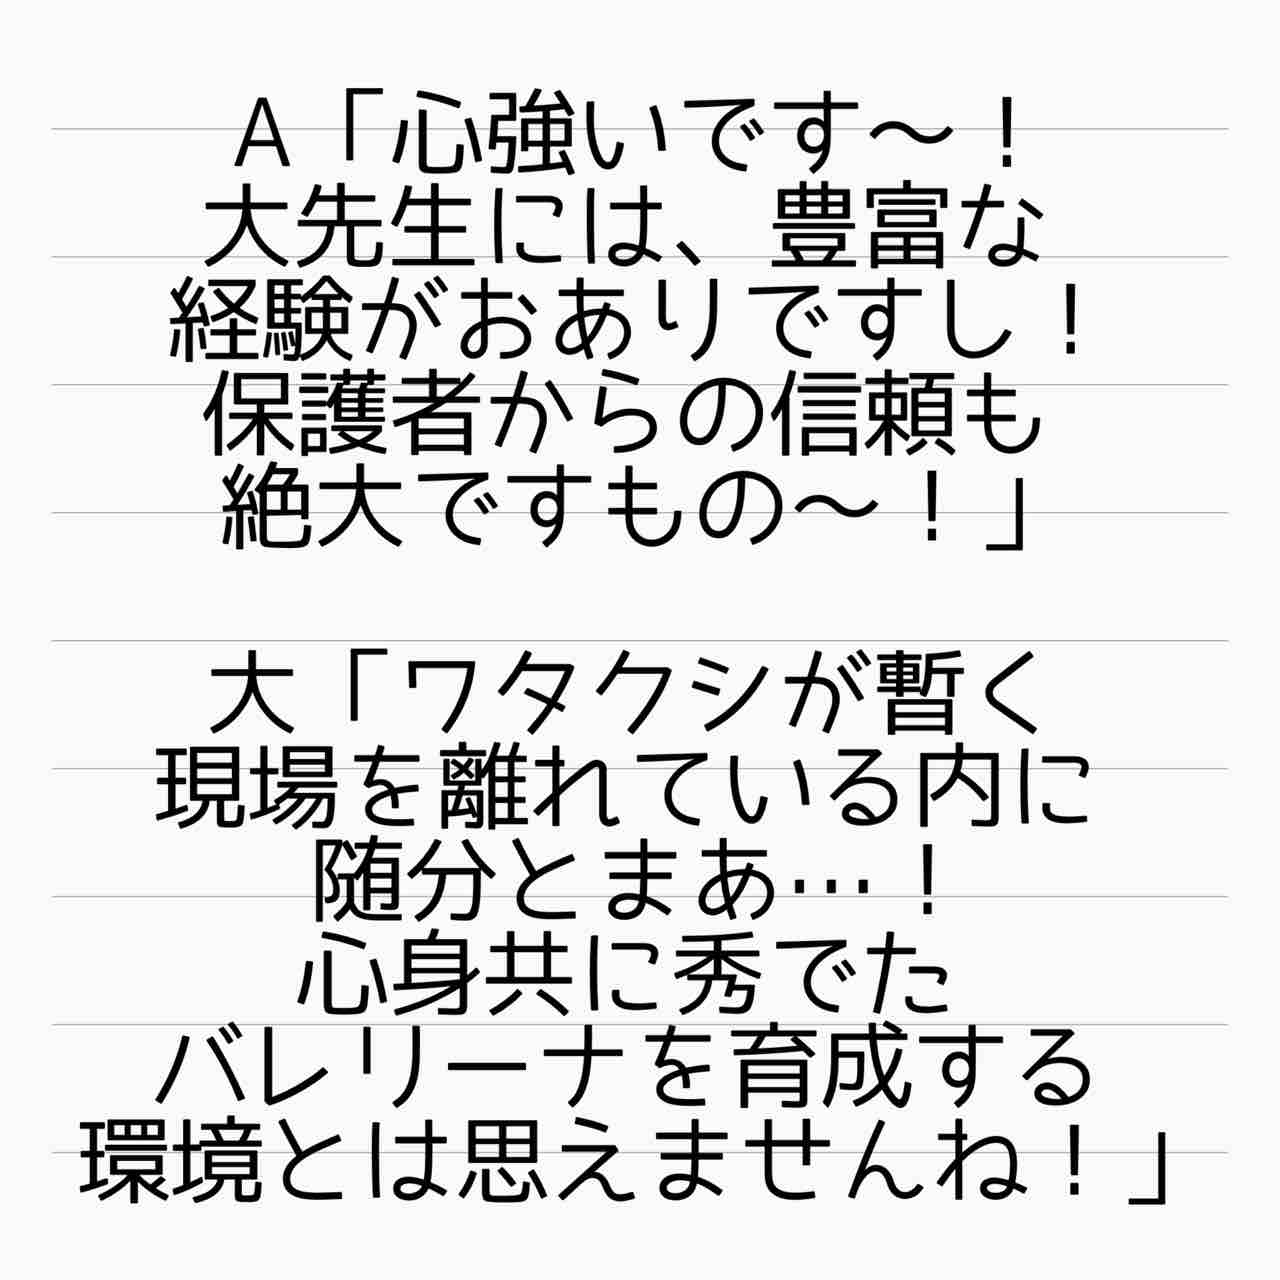 A「心強いです〜！
大先生には、豊富な
経験がおありですし！
保護者からの信頼も
絶大ですもの〜！」
大「ワタクシが暫く
現場を離れている内に
随分とまあ…！
心身共に秀でた
バレリーナを育成する
環境とは思えませんね！」